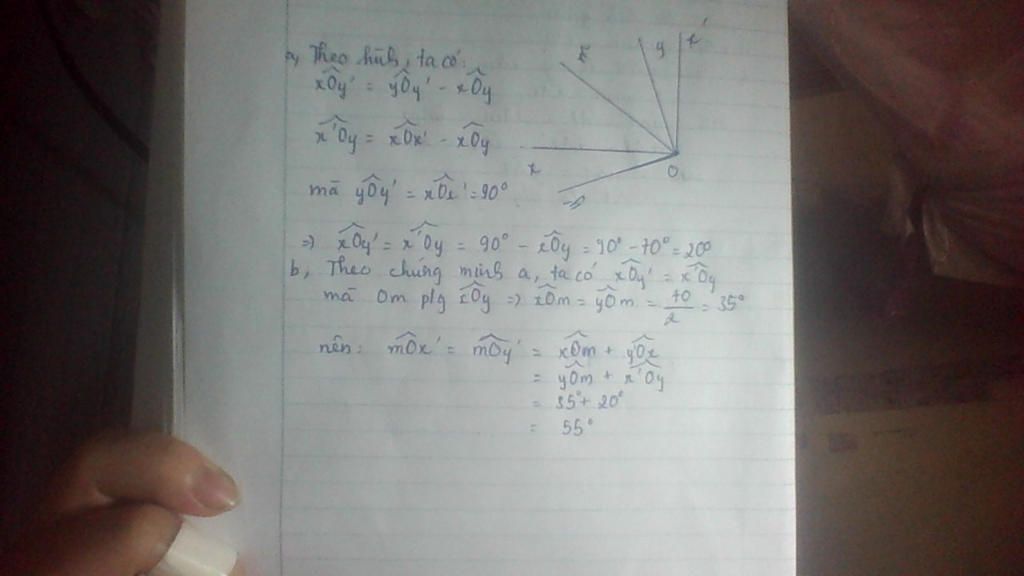 a, Theo hình, ta có:
xOy' = yOy' - xOy
x'Oy = xOx' - xOy
mà yOy' = xOx' = 90°
=> xOy' = x'Oy = 90° - xOy = 90° - 70° = 20°
b, Theo chứng minh a, ta có xOy' = x'Oy
mà Om p/g xOy => xOm = yOm = 70/2 = 35°
nên: mOx' = mOy' = xOm + y'Ox
= yOm + x'Oy
= 35° + 20°
= 55°
y
x'
x
O